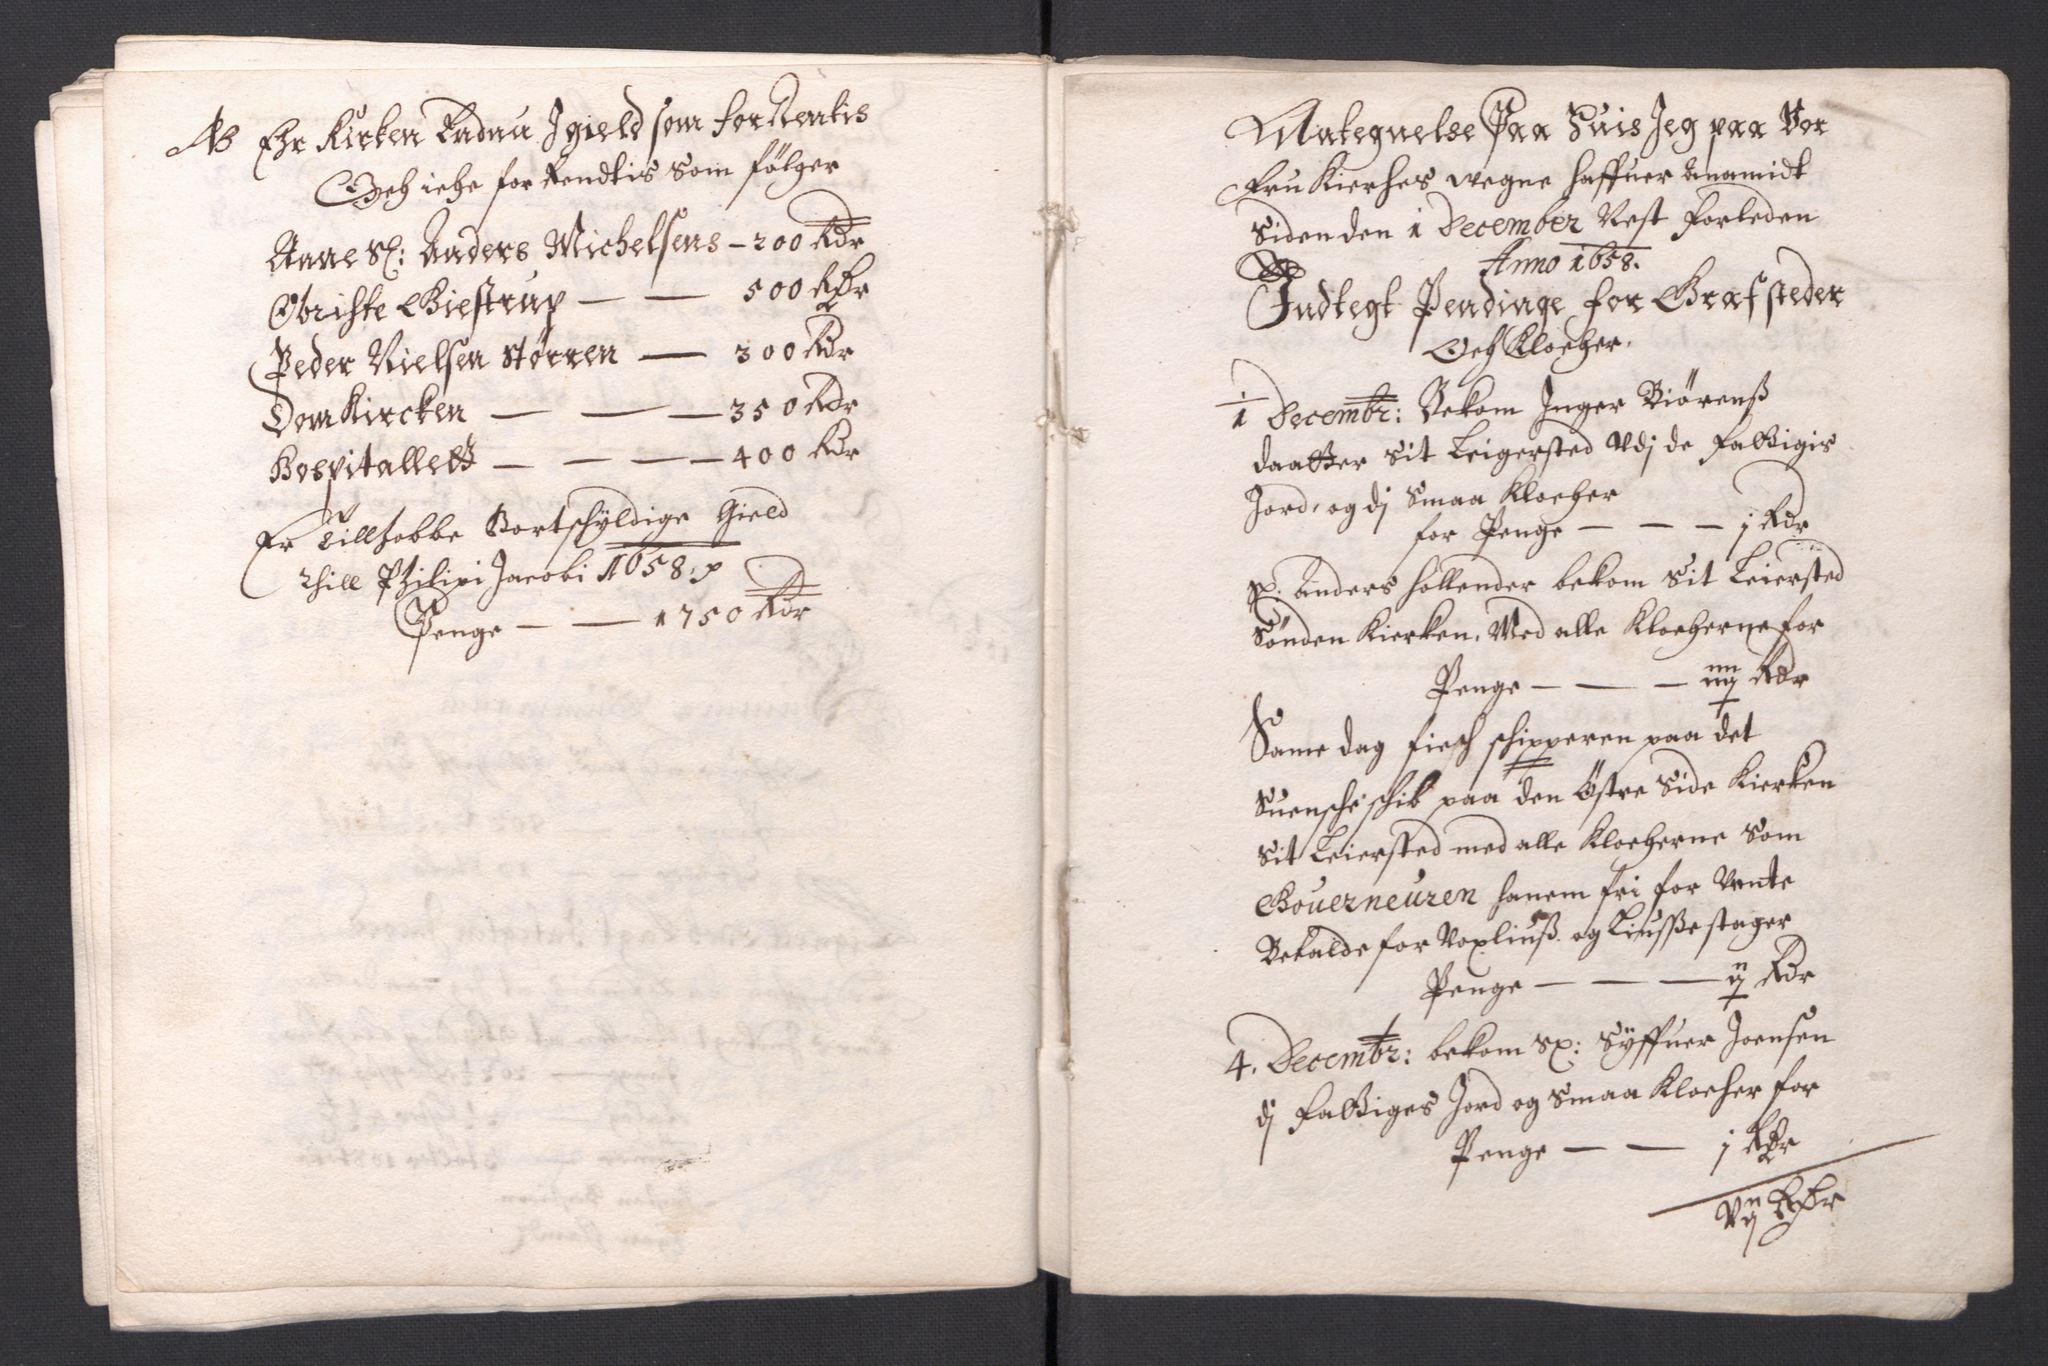 NB Ehr Kirken Endnu I gield som forRentis
Och iche for Rendtis som følger
Anne Sl: Anders Michelsens – 200 Rdr
Obriste Giestrup — — 500 Rdr
Peder Nielsen Størren — 300 Rdr
DomKircken — — — 350 Rdr
Hospitallet — — — — 400 Rdr
Er Tillsobbe Bortschÿldige Gield
thill Philipi Jacobi 1658:
Penge — — 1750 Rdr
Antegnelse Paa Huis Jeg paa Vor
Fru Kierches wegne haffuer Anamidt
Siden den 1 December Nest Forleden
Anno 1658.
Indtegt Pendinge for Grafsteder
Och Klocher.
1 Decembr: Bekom Inger Biörenß
daatter sit Leigersted Vdj de Fattigis
Jord, og dj Smaa Klocher
for Penge — — — j Rdr
Sl: Anders Hollender bekom Sit Leiersted
Sønden Kierken, Med alle Klocherne for
Penge — — — iiij Rdr
Same dag fich schipperen paa det
Suensche schib paa den Östre Side Kierken
Sit Leiersted med alle Klocherne Som
Gouerneuren hanem fri for
Betalde for Voxliuß og Liussestager
Penge — — — ij Rdr
4. Decembr: bekom Sl: Syffuer Joensen
dj Fattiges Jord og Smaa Klocher for
Penge — — j Rdr
Vij Rdr